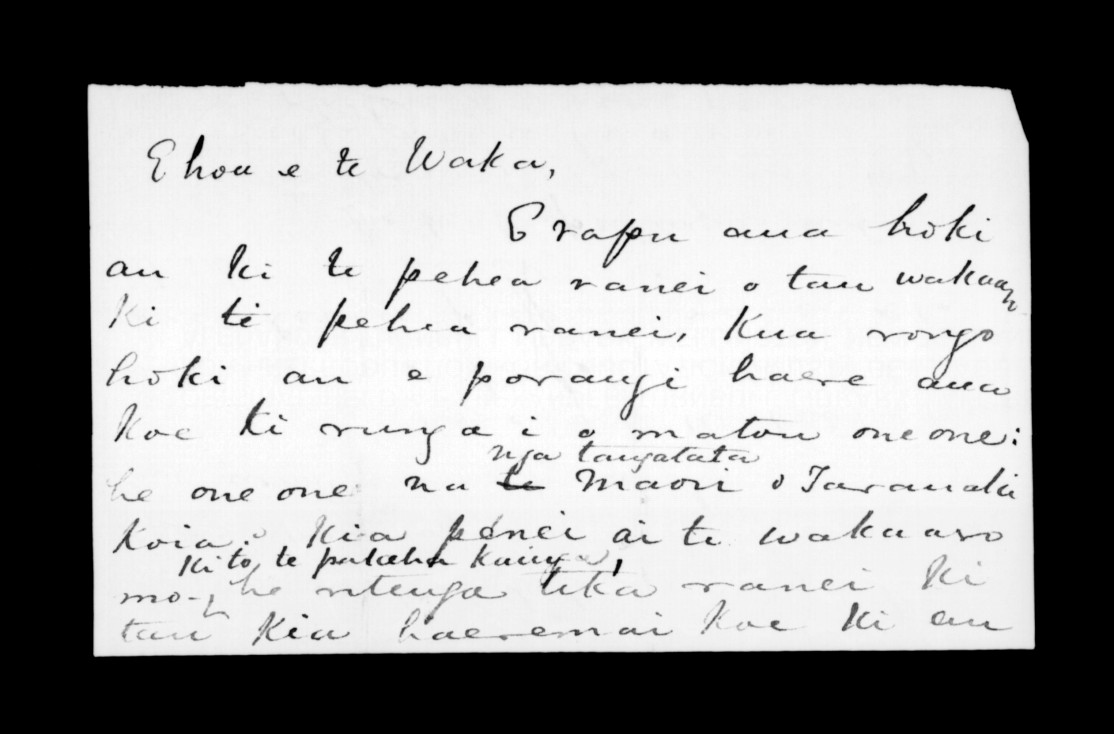 E hoa e te Waka,
E rapu ana hoki
au ki te pehea ranei o tau wakaaro
ki te pehea ranei, Kua rongo
hoki au e porangi haere ana
koe ki runga i o matou oneone:
nga tangata
he oneone na te Maori o Taranaki
koia. Kia penei ai te wakaaro
ki to te pakeha kainga,
mo- he ritenga tika ranei ki
tau kia haeremai koe ki au